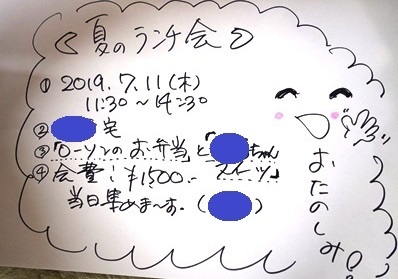 夏のランチ会
① 2019.7.11(木)
11:30～14:30
② 宅
③ ローソンのお弁当と「ちゃん
スイーツ」
④ 会費：¥1500.-
当日集めまーす。( )
おたのしみ!